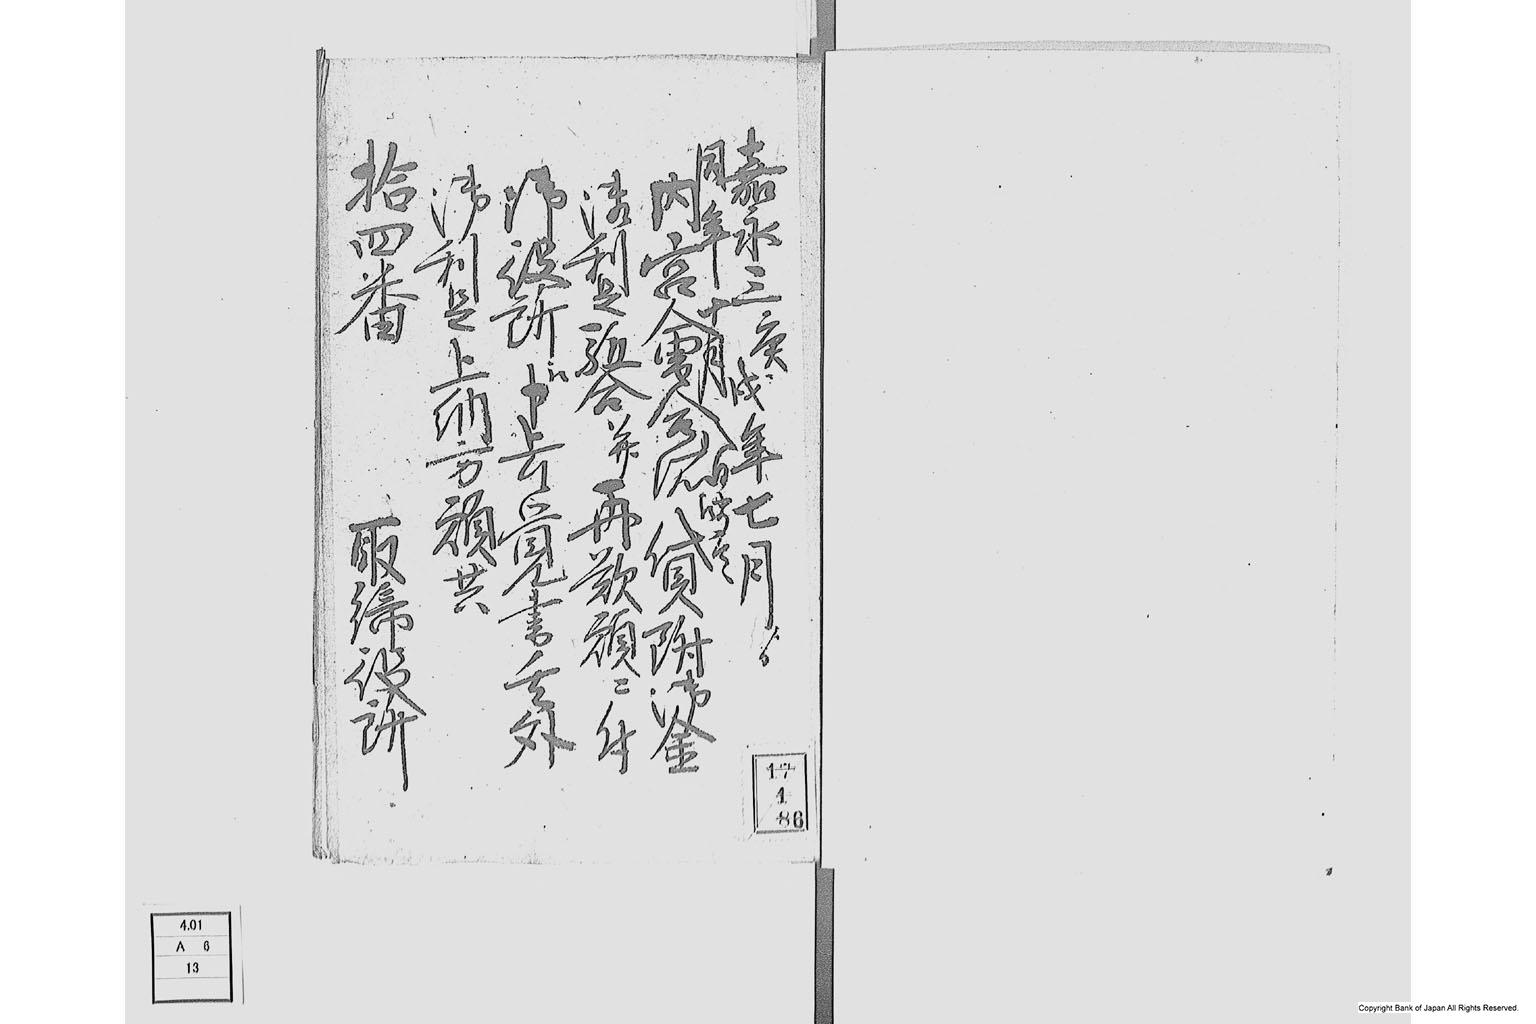 嘉永三庚戌年七月ゟ
同年十月
内宮会合所貸附御金
御利足組合并再歎願二件
御役所江申上候覚書壱外
御利足上納方願共
拾四番
取締役所
17
1
86
4.01
A 6
13
Copyright Bank of Japan All Rights Reserved.